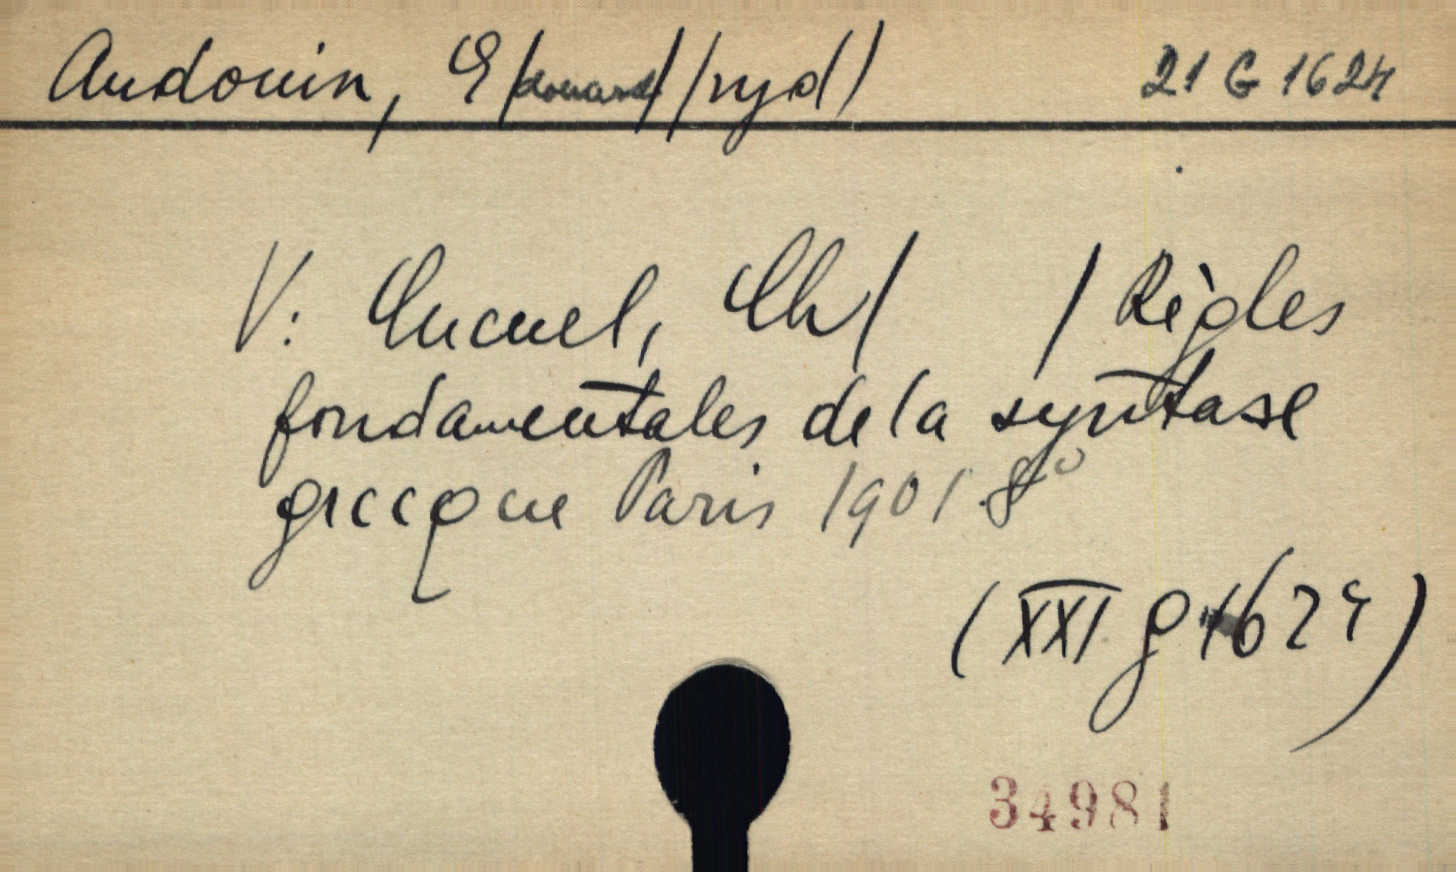 Audouin, E/douard/ /ryd/ 21 G 1624
V: Cucuel, Ch/ / Règles
fondamentales de la syntaxe
grecque Paris 1901. 8°
(XXI g 1624)
34981